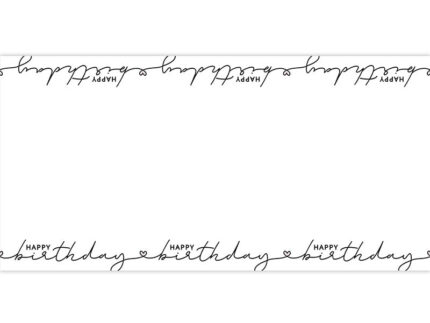 HAPPY birthday HAPPY birthday HAPPY birthday
HAPPY birthday HAPPY birthday HAPPY birthday